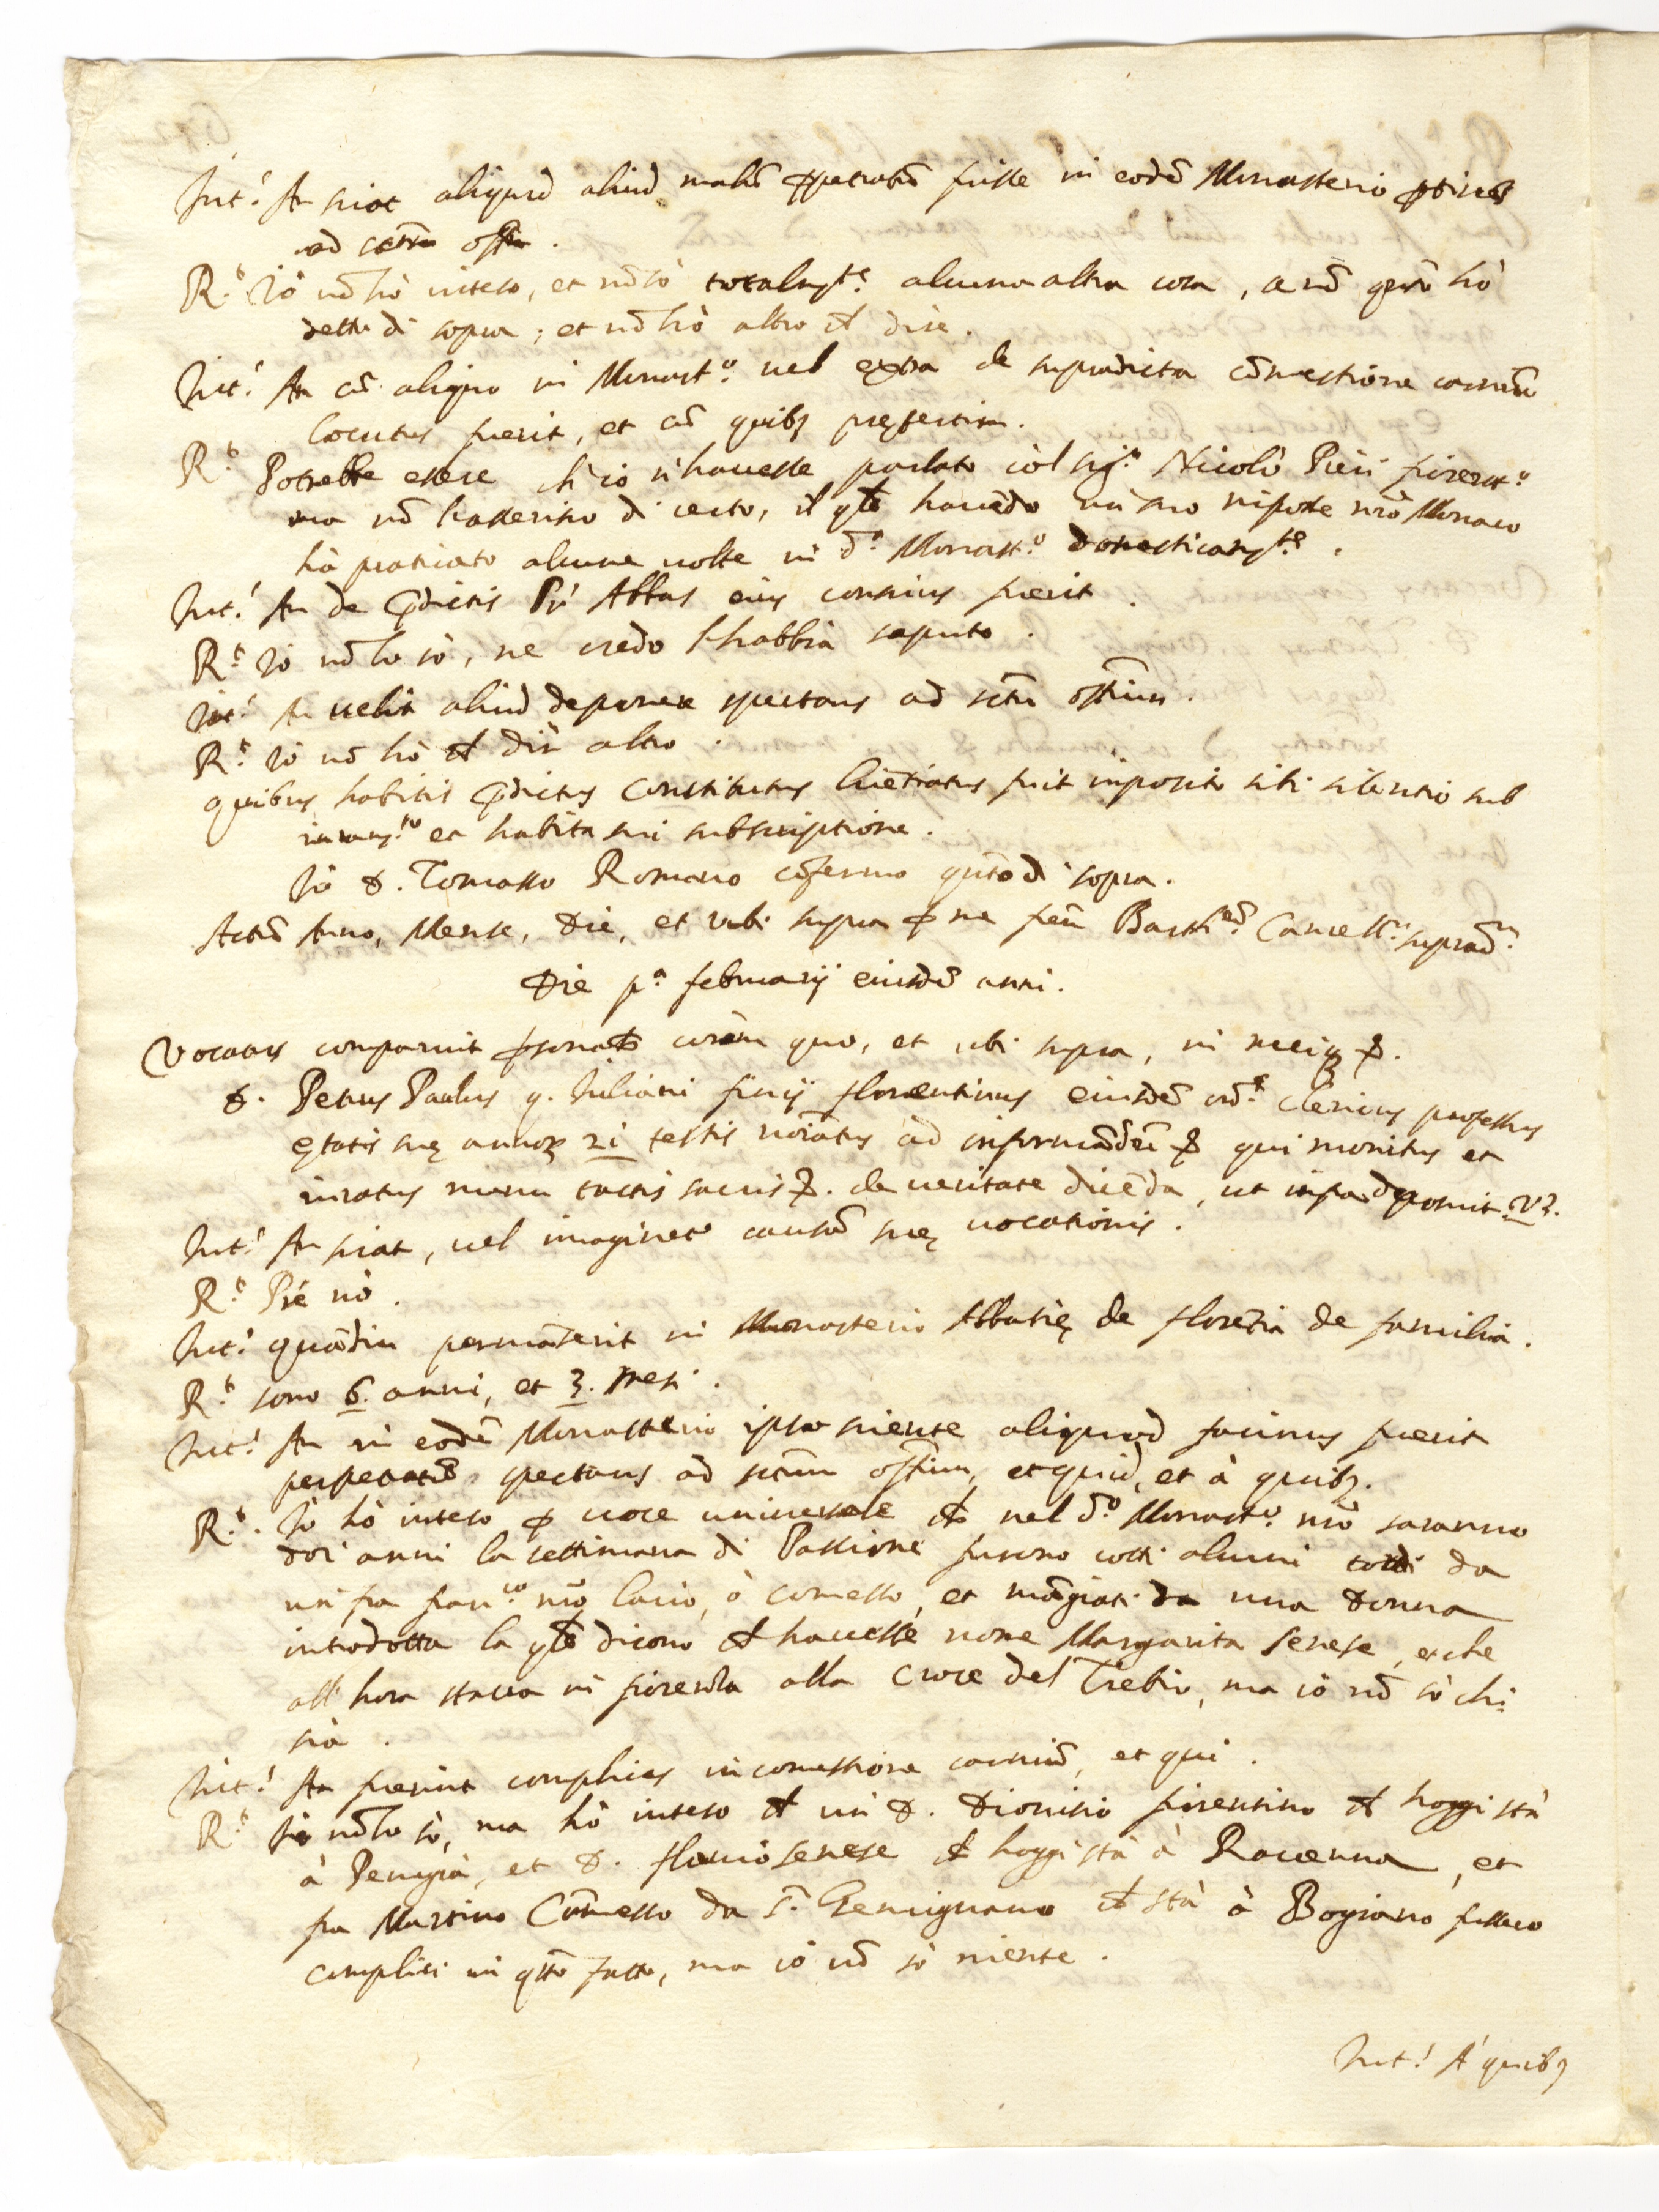 Int.! An sciat aliquid aliud malũ ꝑpetratũ fuisse in eodẽ Monasterio
ad sctm̃ offm̃.
R.t Io nõ hò inteso, et nõ sò totalmte. alcuna altra cosa, se nõ qũto hò
detto di sopra; et nõ hò altro ch̃ dire.
Int.! An cũ aliquo in Monast.o vel extra de supradicta cõmestione carniũ
locutus fuerit, et cũ quibȝ pręsertim.
R.t Potrebbe essere ch'io n'havesse parlato còl sig.r Nicolò Pieri fiorent.o
ma nõ l'asserisco di certo, il qle havẽdo un suo nipote nrõ Monaco
hà praticato alcune volte in d.o Monast.o domesticamte.
Int.! An de ꝑdictis Pr̃ Abbas eius conscius fuerit.
R.t Io nõ lo sò, ne credo l'habbia saputo.
Int.! An velit aliud deponere spectans ad sctm̃ offitium.
R.t Io nõ hò ch̃ dir altro.
quibus habitis ꝑdictus Constitutus licẽtiatus fuit imposito sibi silentio sub
iuram.to et habita sui subscriptione.
Io D. Tomasso Romano cõfermo qũto di sopra.
Actũ Anno, Mense, Die, et ubi supra ꝑ me Cancell.m suprad.m
Die p.a februarij eiusdẽ anni.
Vocatus comparuit ꝑsonalr̃ coràm quo, et ubi supra, in meiqȝ &.
D. Petrus Paulus q. Iuliani finij florentinus eiusdẽ ord.s clericus professus
ętatis suę annoꝝ 21 testis noĩatus ad informãdũ & qui monitus et
iuratus manu tactis sacris &. de veritate dicẽda, ut infra deposuit V3.
Int.! An sciat, vel imaginet causã suę vocationis.
R.t Pr̃e nò.
Int.! quãdiu permãserit in Monasterio Abbatię de florẽtia de familia.
R.t sono 6. anni, et 3. mesi.
Int.! An in eodẽ Monasterio ipso sciente aliquod facinus fuerit
perpetratũ spectans ad sctum offitium, et quid, et à quibȝ.
R.t Io hò inteso ꝑ voce universale ch̃ nel d.o Monast.o nrõ saranno
doi anni la settimana di Passione furono cotti alcuni tordi da
un fra fran.co nrõ laico, ò comesso, et mãgiati da una donna
introdotta la qle dicono ch̃ havesse nome Margarita senese, et che
all'hora stava in fiorenza alla Croce del Trebio, ma io nõ sò chi
sia.
Int.! An fuerint complices in comestione carniũ, et qui.
R.t Io nõ lo sò, ma hò inteso ch̃ un D. Dionisio fiorentino ch̃ hoggi stà
à Perugia, et D. flavio senese ch̃ hoggi stà à Ravenna, et
fra Martino Cõmesso da S. Gemignano ch̃ stà à Bogiano fussero
complici in qsto fatto, ma io nõ sò niente.
Int.! A' quibȝ